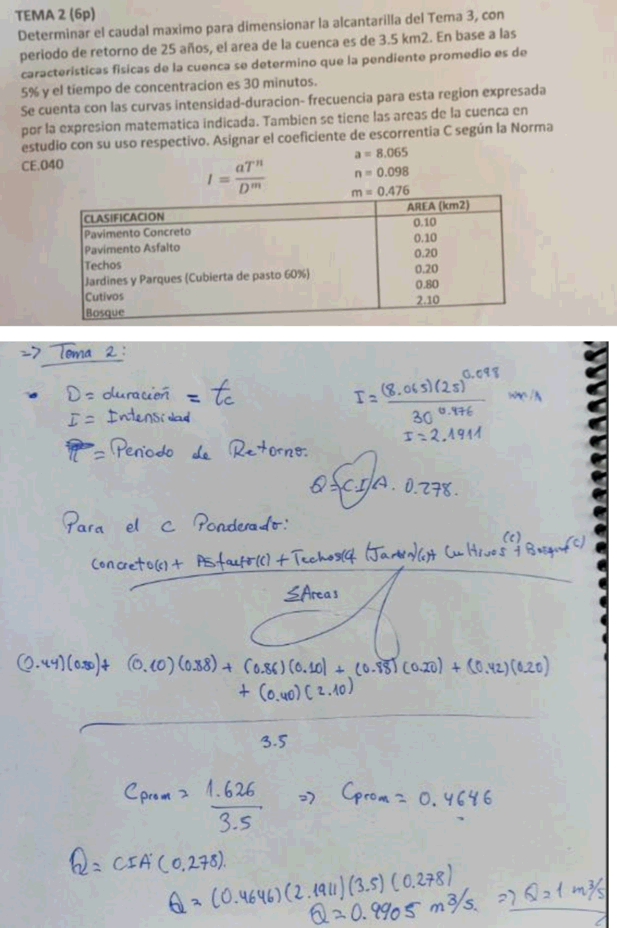 TEMA 2 (6p)
Determinar el caudal maximo para dimensionar la alcantarilla del Tema 3, con
periodo de retorno de 25 años, el area de la cuenca es de 3.5 km2. En base a las
caracteristicas fisicas de la cuenca se determino que la pendiente promedio es de
5% y el tiempo de concentracion es 30 minutos.
Se cuenta con las curvas intensidad-duracion- frecuencia para esta region expresada
por la expresion matematica indicada. Tambien se tiene las areas de la cuenca en
estudio con su uso respectivo. Asignar el coeficiente de escorrentia C según la Norma
CE.040
I = aTⁿ / Dᵐ
a = 8.065
n = 0.098
m = 0.476
CLASIFICACION AREA (km2)
Pavimento Concreto 0.10
Pavimento Asfalto 0.10
Techos 0.20
Jardines y Parques (Cubierta de pasto 60%) 0.20
Cutivos 0.80
Bosque 2.10
=> Tema 2:
D = duración = tc
I = Intensidad
= Periodo de Retorno.
I = (8.065)(25)^0.098 / 30^0.476
I = 2.1911
Q = C.I.A. 0.278.
Para el C Ponderado:
Concreto(c) + Asfalto(c) + Techos(c) + (Jardin)(c) + Cultivos (c) + Bosque(c)
ΣAreas
(0.44)(0.80) + (0.10)(0.88) + (0.86)(0.10) + (0.88)(0.20) + (0.42)(0.20)
+ (0.40)(2.10)
3.5
Cprom = 1.626 / 3.5 => Cprom = 0.4646
Q = CIA (0.278).
Q = (0.4646)(2.1911)(3.5)(0.278)
Q = 0.9905 m³/s. => Q = 1 m³/s